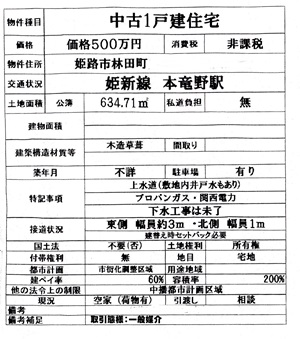 物件種目 中古1戸建住宅
価格 価格500万円 消費税 非課税
物件住所 姫路市林田町
交通状況 姫新線 本竜野駅
土地面積 公簿 634.71㎡ 私道負担 無
建物面積
建築構造材質等 木造草葺 間取り
築年月 不詳 駐車場 有り
特記事項 上水道(敷地内井戸水もあり)
プロパンガス・関西電力
下水工事は未了
接道状況 東側 幅員約3m ・北側 幅員1m
建替え時セットバック必要
国土法 不要(否) 土地権利 所有権
付帯権利 無 地目 宅地
都市計画 市街化調整区域 用途地域
建ペイ率 60% 容積率 200%
他の法令上の制限 中播都市計画区域
現況 空家(荷物有) 引渡し 相談
備考
備考補足 取引態様:一般媒介